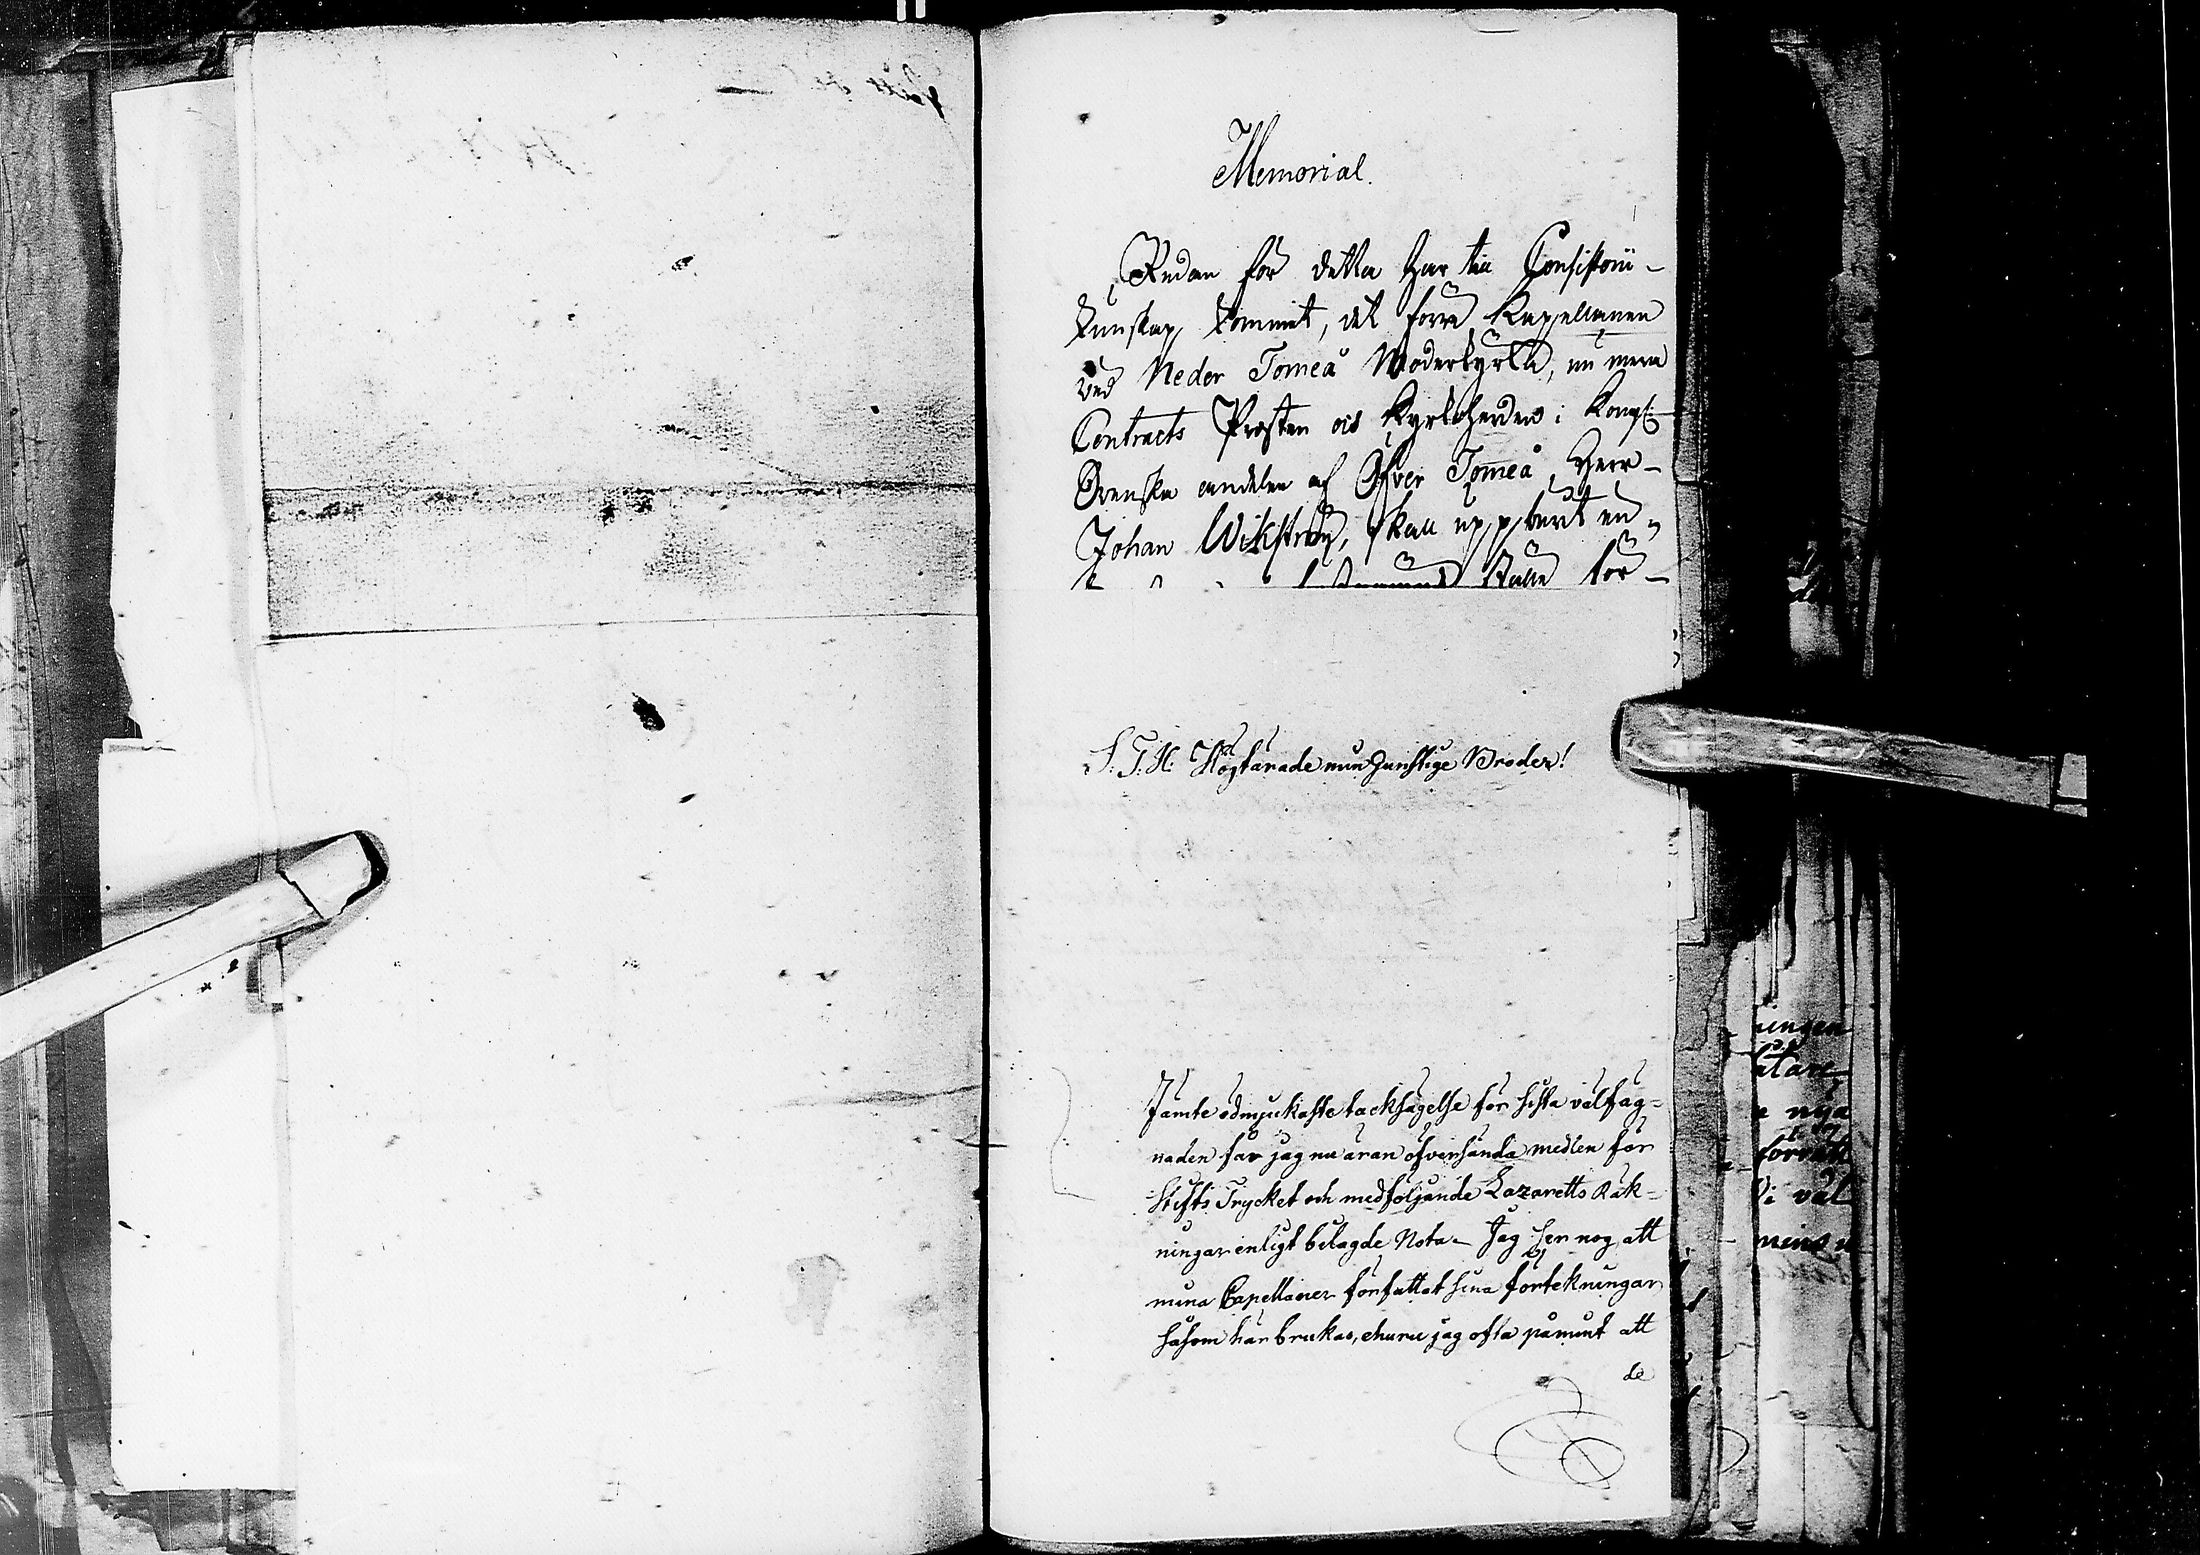 Memorial.
Redan för detta har till Consistorii-
kunskap kommit, det förra Kapellanen
ved Neder Torneå Moderkyrka, nu mera
Contracts Prosten och Kyrkoherden i Kongl.
Svenska andelen af Öfver Torneå, Herr-
Johan Wikström, skall uppburit en
ställe för-
S. T. H. Högtärade min Gunstige Broder!
Jämte ödmjukaste tacksägelse för sista välfäg-
naden får jag nu äran öfversända medlen för
Stifts Trycket och medföljande Lazaretts Räk-
ningar enligt bilagde Nota. Jag ser nog att
mina Capellaner författat sina förtekningar
såsom här brukas, ehuru jag ofta påmint att
de
ningen
nya
förrätt
Vi väl